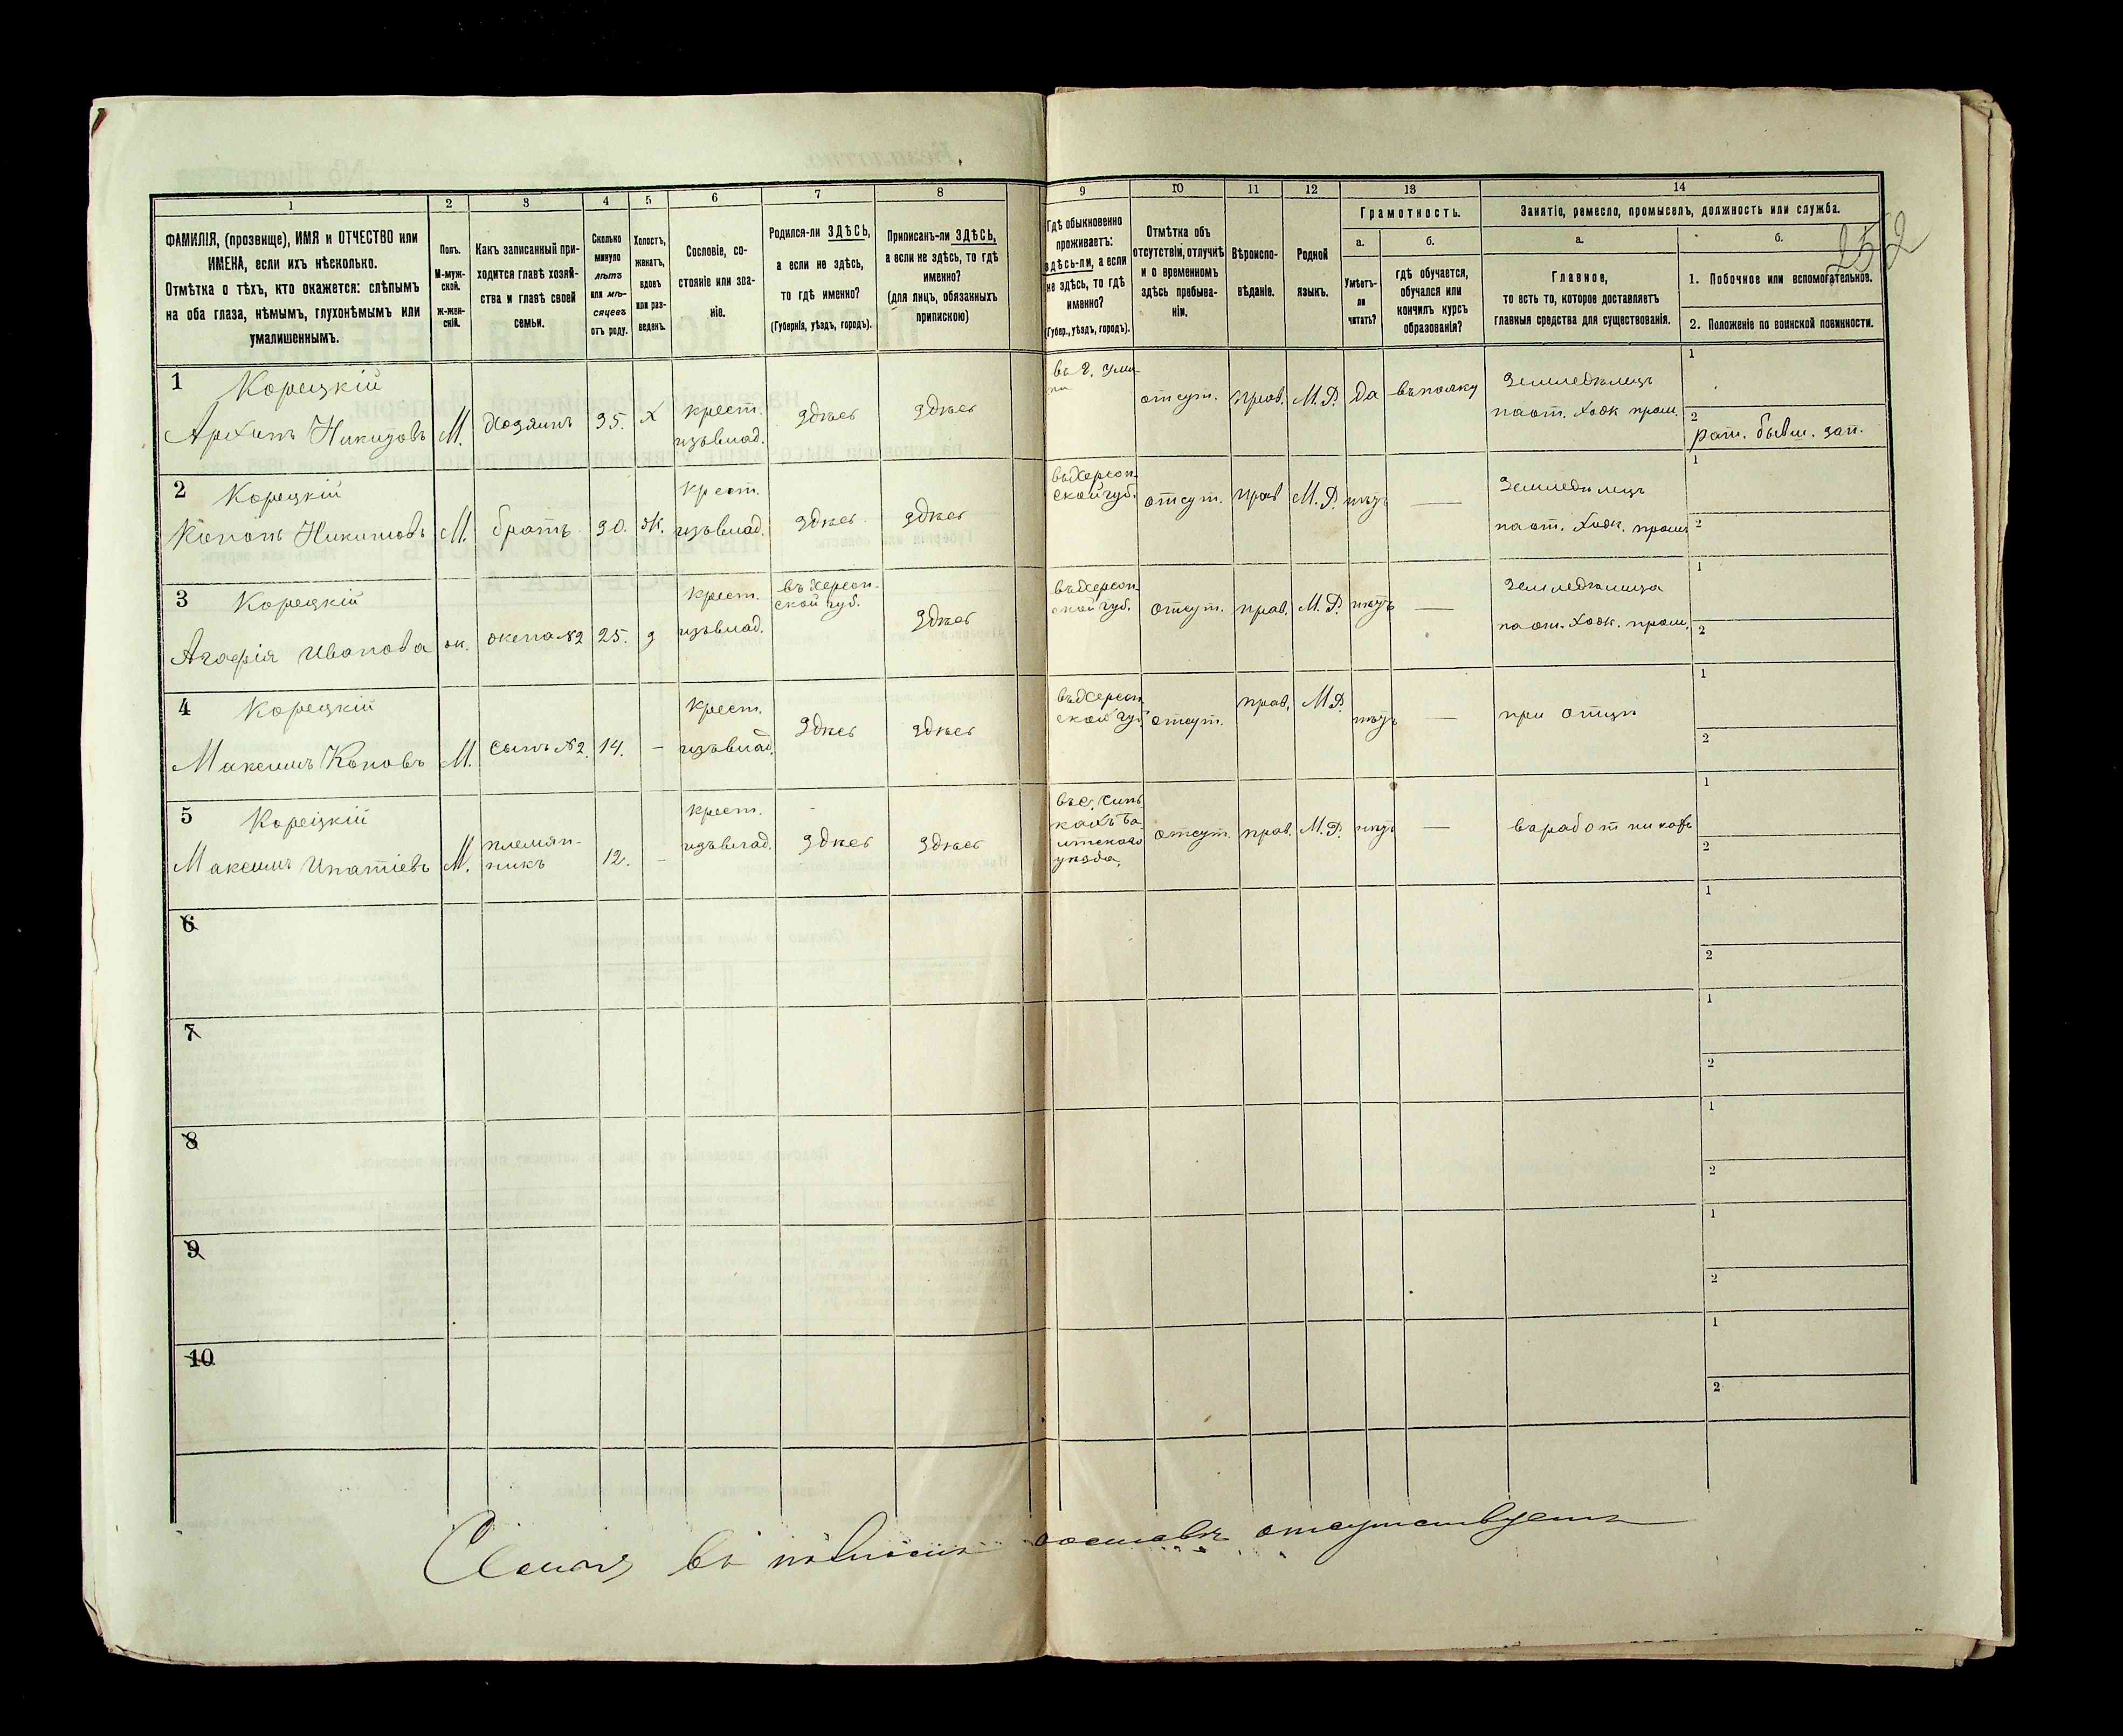 252
1
2
3
4
5
6
7
8
9
10
11
12
13
14
ФАМИЛІЯ, (прозвище), ИМЯ и ОТЧЕСТВО или
ИМЕНА, если ихъ нѣсколько.
Отмѣтка о тѣхъ, кто окажется: слѣпымъ
на оба глаза, нѣмымъ, глухонѣмымъ или
умалишеннымъ.
Полъ.
М-муж-
ской.
ж-жен-
скій.
Какъ записанный при-
ходится главѣ хозяй-
ства и главѣ своей
семьи.
Сколько
минуло
лѣтъ
или мѣ-
сяцевъ
отъ роду.
Холостъ,
женатъ,
вдовъ
или раз-
веденъ.
Сословіе, со-
стояніе или зва-
ніе.
Родился-ли ЗДѢСЬ,
а если не здѣсь,
то гдѣ именно?
(Губернія, уѣздъ, городъ).
Приписанъ-ли ЗДѢСЬ,
а если не здѣсь, то гдѣ
именно?
(для лицъ, обязанныхъ
припискою)
Гдѣ обыкновенно
проживаетъ:
здѣсь-ли, а если
не здѣсь, то гдѣ
именно?
(Губер., уѣздъ, городъ).
Отмѣтка объ
отсутствіи, отлучкѣ
и о временномъ
здѣсь пребыва-
ніи.
Вѣроиспо-
вѣданіе.
Родной
языкъ.
Грамотность.
а.
Умѣетъ-
ли
читать?
б.
гдѣ обучается,
обучался или
кончилъ курсъ
образованія?
Занятіе, ремесло, промыселъ, должность или служба.
а.
Главное,
то есть то, которое доставляетъ
главныя средства для существованія.
б.
1. Побочное или вспомогательное.
2. Положеніе по воинской повинности.
1 Корецкій
Архипъ Никитовъ
М.
Хозяинъ
35.
Х
крест.
изъ влад.
здѣсь
здѣсь
въ г. Ума-
ни
отсут.
прав.
М.Р.
да
въ полку
Земледѣлецъ
на от. ход. пром.
1
2
рат. бывш. зап.
2 Корецкій
Кононъ Никитовъ
М.
братъ
30.
ж.
крест.
изъ влад.
здѣсь
здѣсь
въ Херсон-
ской губ.
отсут.
прав
М.Р.
нѣтъ
—
Земледѣлецъ
на от. ход. пром.
1
2
3 Корецкій
Агафія Иванова
ж.
жена №2
25.
з
крест.
изъ влад.
въ Херсон-
ской губ.
здѣсь
въ Херсон-
ской губ.
отсут.
прав.
М.Р.
нѣтъ
—
Земледѣлица
на от. ход. пром.
1
2
4 Корецкій
Максимъ Коновъ
М.
сынъ №2.
14.
—
крест.
изъ влад.
здѣсь
здѣсь
въ Херсон-
ской губ.
отсут.
прав.
М.Р.
нѣтъ
—
при отцѣ
1
2
5 Корецкій
Максимъ Ипатіевъ
М.
племян-
никъ
12.
—
крест.
изъ влад.
здѣсь
здѣсь
отсут.
прав.
М.Р.
нѣтъ
—
въ работникахъ
1
2
6
1
2
7
1
2
8
1
2
9
1
2
10
1
2
Семья въ полномъ составѣ отсутствуетъ